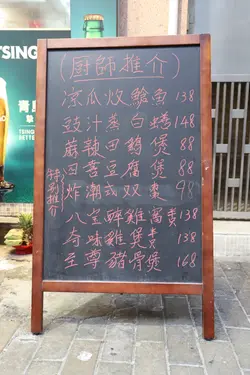 TSING
(廚師推介)
涼瓜炆鯰魚 138
豉汁蒸白鱔 148
麻辣田鷄煲 88
四喜豆腐煲 88
炸潮式双棗 98
特別推介
八宝醉雞窩 138
奇味雞煲 138
至尊豬骨煲 168